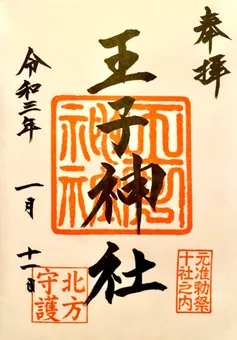 奉拝
王子神社
王子神社
令和三年 一月 十一日
元准勅祭
十社之内
北方
守護